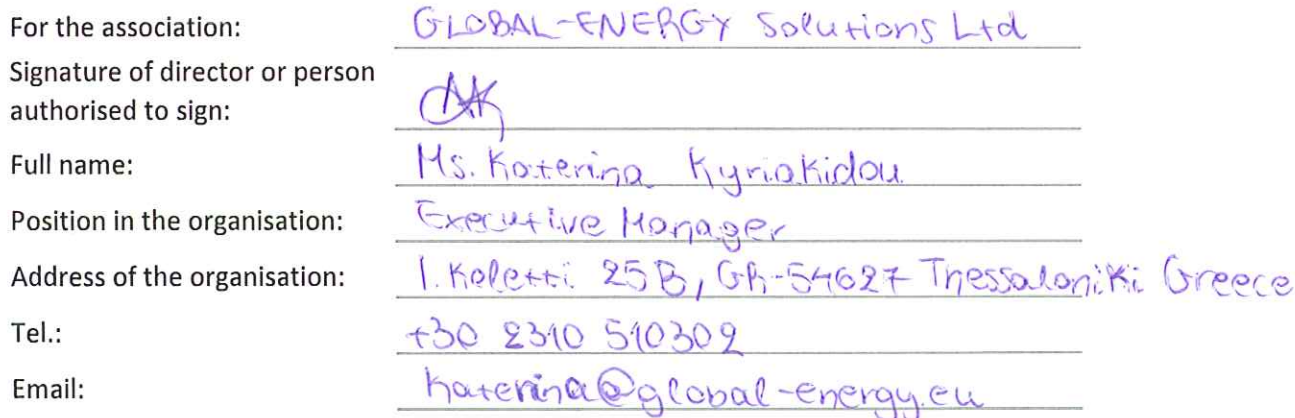 For the association: GLOBAL-ENERGY Solutions Ltd
Signature of director or person
authorised to sign:
Full name: Ms. Katerina Kyriakidou
Position in the organisation: Executive Manager
Address of the organisation: I. Koletti 25B, GR-54627 Thessaloniki Greece
Tel.: +30 2310 510302
Email: katerina@global-energy.eu